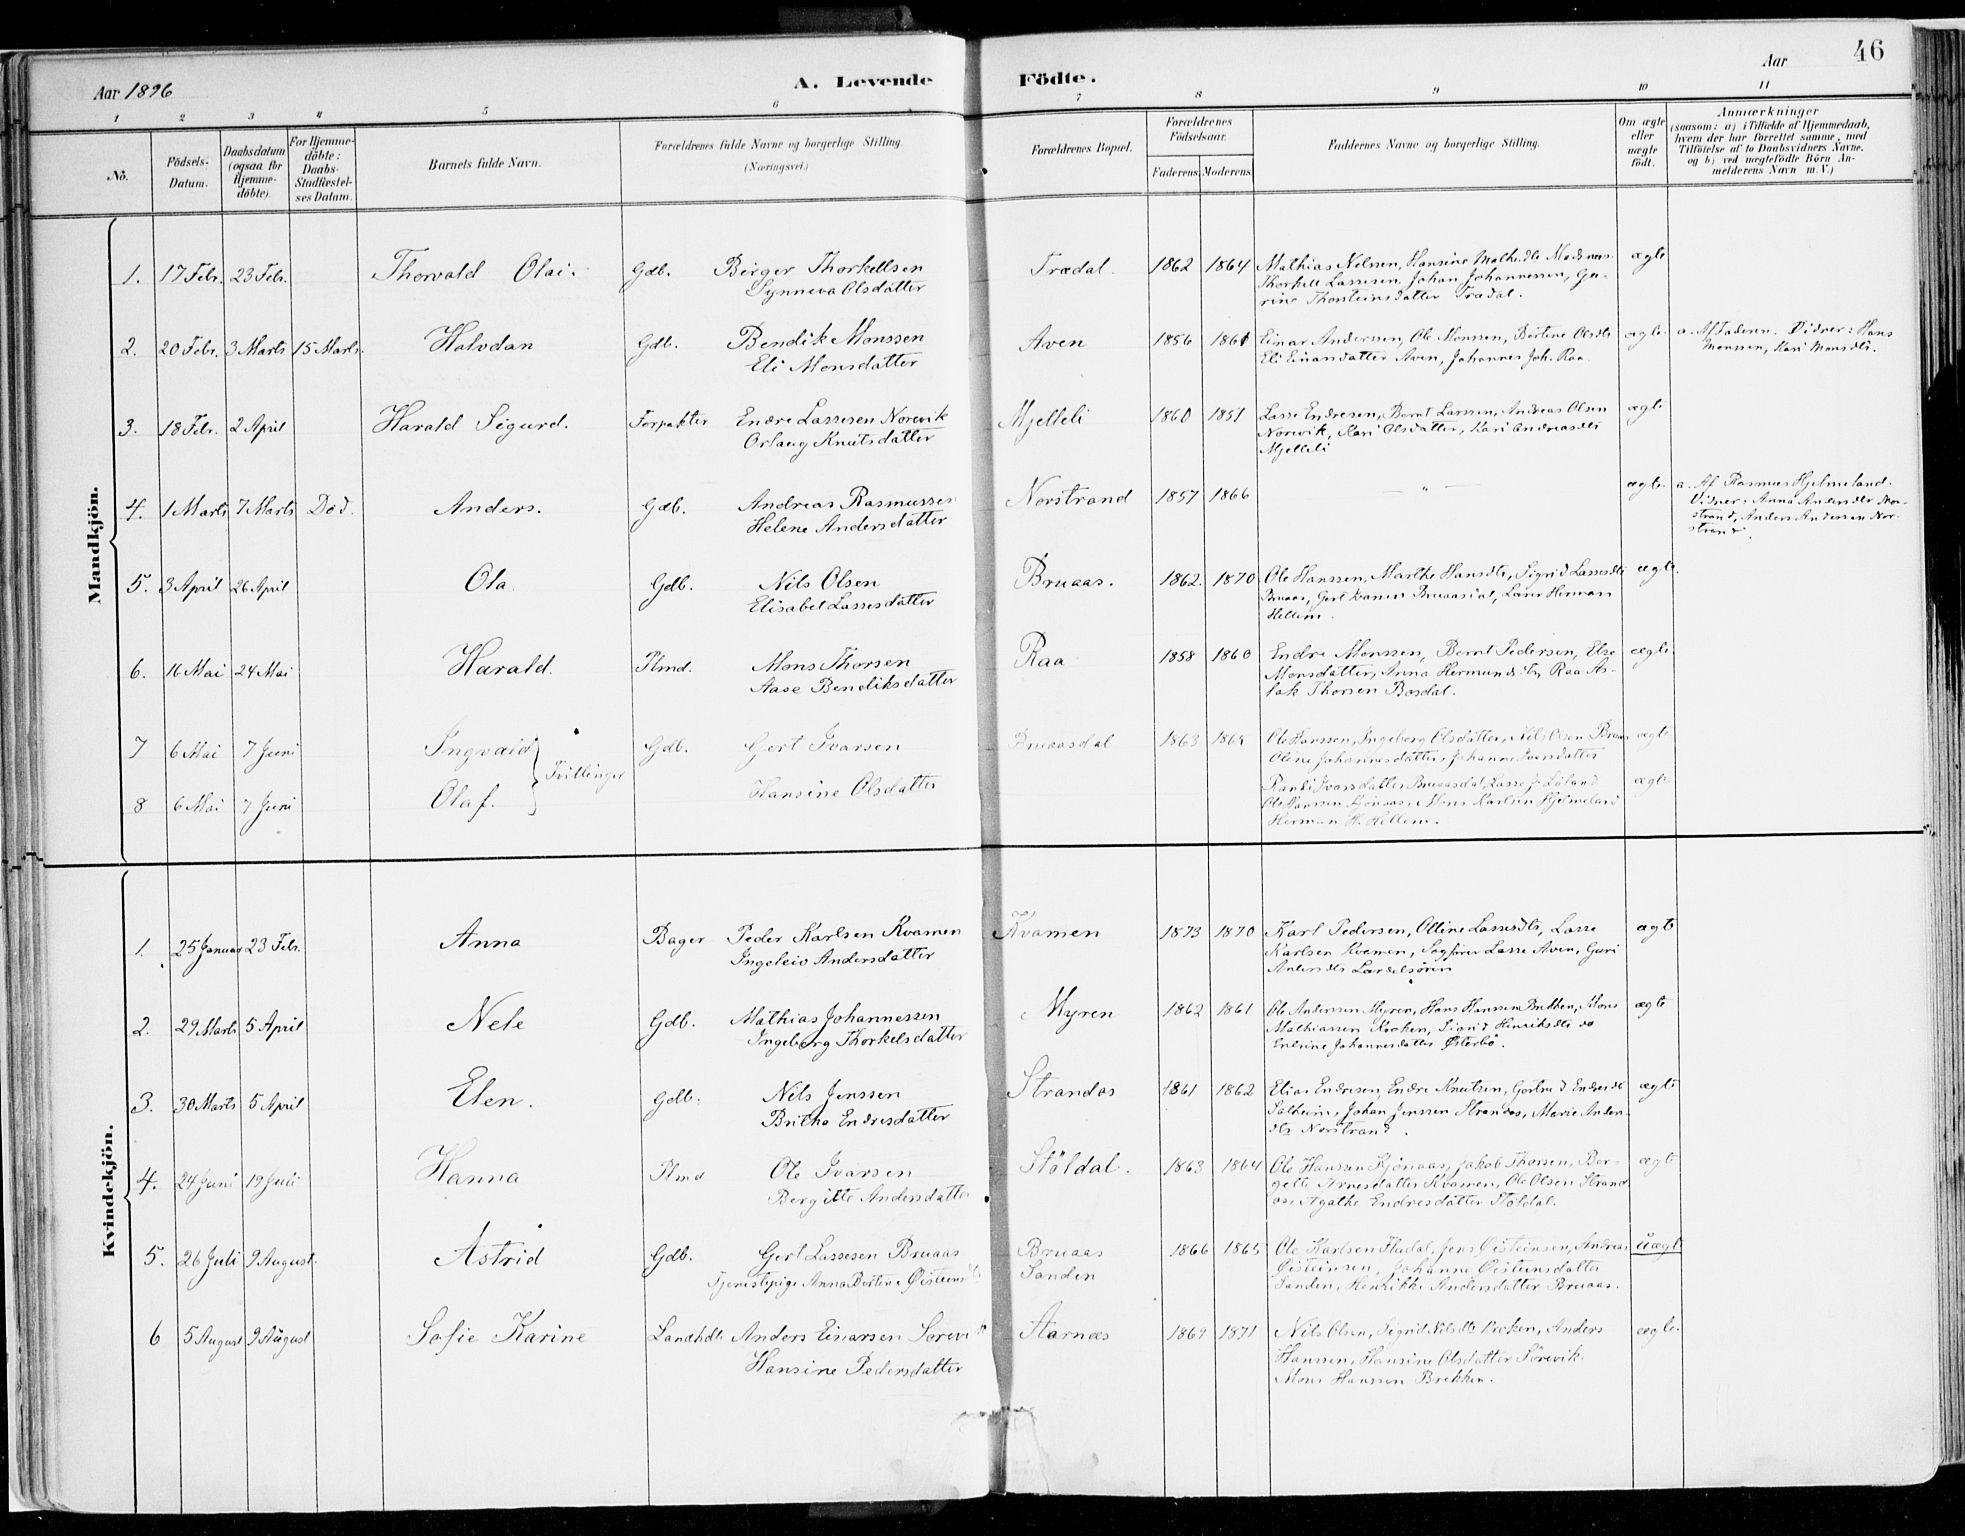 46
Aar 1896
A. Levende Födte.
Aar
1 2 3 4 5 6 7 8 9 10 11
No.
Födsels-Datum.
Daabsdatum (ogsaa for Hjemme-döbte).
For Hjemme-döbte: Daabs-Stadfæstel-ses Datum.
Barnets fulde Navn.
Forældrenes fulde Navne og borgerlige Stilling.
(Næringsvei.)
Forældrenes Bopæl.
Forældrenes Födselsaar.
Faderens. Moderens.
Faddernes Navne og borgerlige Stilling.
Om ægte eller uægte födt.
Anmærkninger
(saasom: a) i Tilfælde af Hjemmedaab,
hvem der har forrettet samme, med
Tilföielse af to Daabsvidners Navne,
og b) ved uægtefödte Börn An-
melderens Navn m. V.)
Mandkjön.
1. 17 Febr. 23 Febr. Thorvald Olai. Gdb. Birger Thorkellsen Trædal. 1862 1864 Mathias Nilssen, Hansine Mathisdtr
Synneva Olsdatter Thorkell Lassesen, Johan Johannessen, Gu-
rine Thorsteinsdatter Trædal. ægte
2. 20 Febr. 3 Marts 15 Marts. Halvdan Gdb. Bendik Monssen Aven 1856 1861 Einar Anderssen, Ole Monssen, Bertine Olsdtr ægte a. Af Faderen. Vidner: Hans
Eli Monsdatter Eli Einarsdatter Aven, Johannes Joh. Raa. Monssen, Kari Monsdtr.
3. 18 Febr. 2 April Harald Sigurd. Forpakter Endre Lassesen Norevik Mjelleli 1860 1851 Lasse Endresen, Bernt Larssen, Andreas Olsen ægte
Orlaug Knutsdatter Norevik, Kari Olsdatter, Kari Andreasdtr
Mjelleli
4. 1 Marts 7 Marts Död. Anders. Gdb. Andreas Rasmussen Norstrand 1857 1866 — " — ægte a. Af Rasmus Hjelmeland.
Helene Andersdatter Vidner: Anna Andersdtr Nor-
strand, Anders Anderssen Nor-
strand.
5. 3 April 26 April Ola. Gdb. Nils Olsen Bruaas. 1862. 1870 Ole Hanssen, Marthe Hansdtr, Sigrid Lassesdtr ægte.
Elisabet Lassesdatter Bruaas, Gert Ivarsen Bruaasdal, Lærer Herman
Hellem.
6. 16 Mai 24 Mai Harald. Plmd. Mons Thorsen Raa 1858 1860 Endre Monssen, Bernt Pedersen, Else ægte.
Aase Bendiksdatter Monsdatter, Anna Hermundsdtr, Raa As-
lak Thorsen Bosdal.
7 6 Mai 7 Juni Ingvald Tvillinger Gdb. Gert Ivarsen Bruaasdal 1863 1864 Ole Hanssen, Ingeborg Olsdatter, Nils Olsen Bruaas ægte
Oline Johannesdatter, Johanne Ivarsdatter
8 6 Mai 7 Juni Olaf. Hansine Olsdatter Ivarsdatter Bruaasdal, Lasse J. Løland ægte
Ole Hanssen Kjønaas, Mons Karlsen Hjelmeland
Herman H. Hellem.
Kvindekjön.
1. 25 Januar 23 Febr. Anna Bager Peder Karlsen Kvamen Kvamen 1873 1870 Karl Pedersen, Olline Lassesdtr, Lasse ægte
Ingeleiv Andersdatter Karlsen Kvamen, Sagfører Lasse Aven, Guri
Andersdtr
2. 29 Marts 5 April Nele Gdb. Mathias Johannessen Myren 1862 1861 Ole Andersen Myren, Hans Hanssen Brekken, Mons ægte
Ingeborg Thorkelsdatter Mathiassen Kroken, Sigrid Henriksdtr do
Endrine Johannesdatter Østerbö.
3. 30 Marts 5 April Elen. Gdb. Nils Jenssen Strandos 1861 1862 Elias Endresen, Endre Knutsen, Gertrud Endresdtr ægte
Britha Endresdatter Solheim, Johan Jenssen Strandos, Marie Anders-
dtr Norstrand.
4. 24 Juni 19 Juli Hanna Plmd Ole Ivarsen Stöldal. 1863 1864 Ole Hanssen Kjönaas, Jakob Thorsen, Ber- ægte
Bergitte Andersdatter gette Arnesdatter Kvamen, Ole Olsen Strand-
os, Agathe Endresdatter Stöldal.
5. 26 Juli 9 August. Astrid Gdb. Gert Lassesen Bruaas Bruaas 1866 1865 Ole Karlsen Indal, Jens Øisteinsen, Andreas uægte
Tjenestepige Anna Bertine Øisteinsdtr Sanden Øisteinsen, Johanne Øisteinsdatter
Sanden, Henrikke Andersdatter Bruaas.
6 5 August 9 August Sofie Karine Landhdl. Anders Einarsen Sörevik Aarnæs 1869 1871 Nils Olsen, Sigrid Nilsdtr Kroken, Anders ægte.
Hansine Pedersdatter Hanssen, Hansine Olsdatter Sörevik.
Mons Hanssen Brekken.